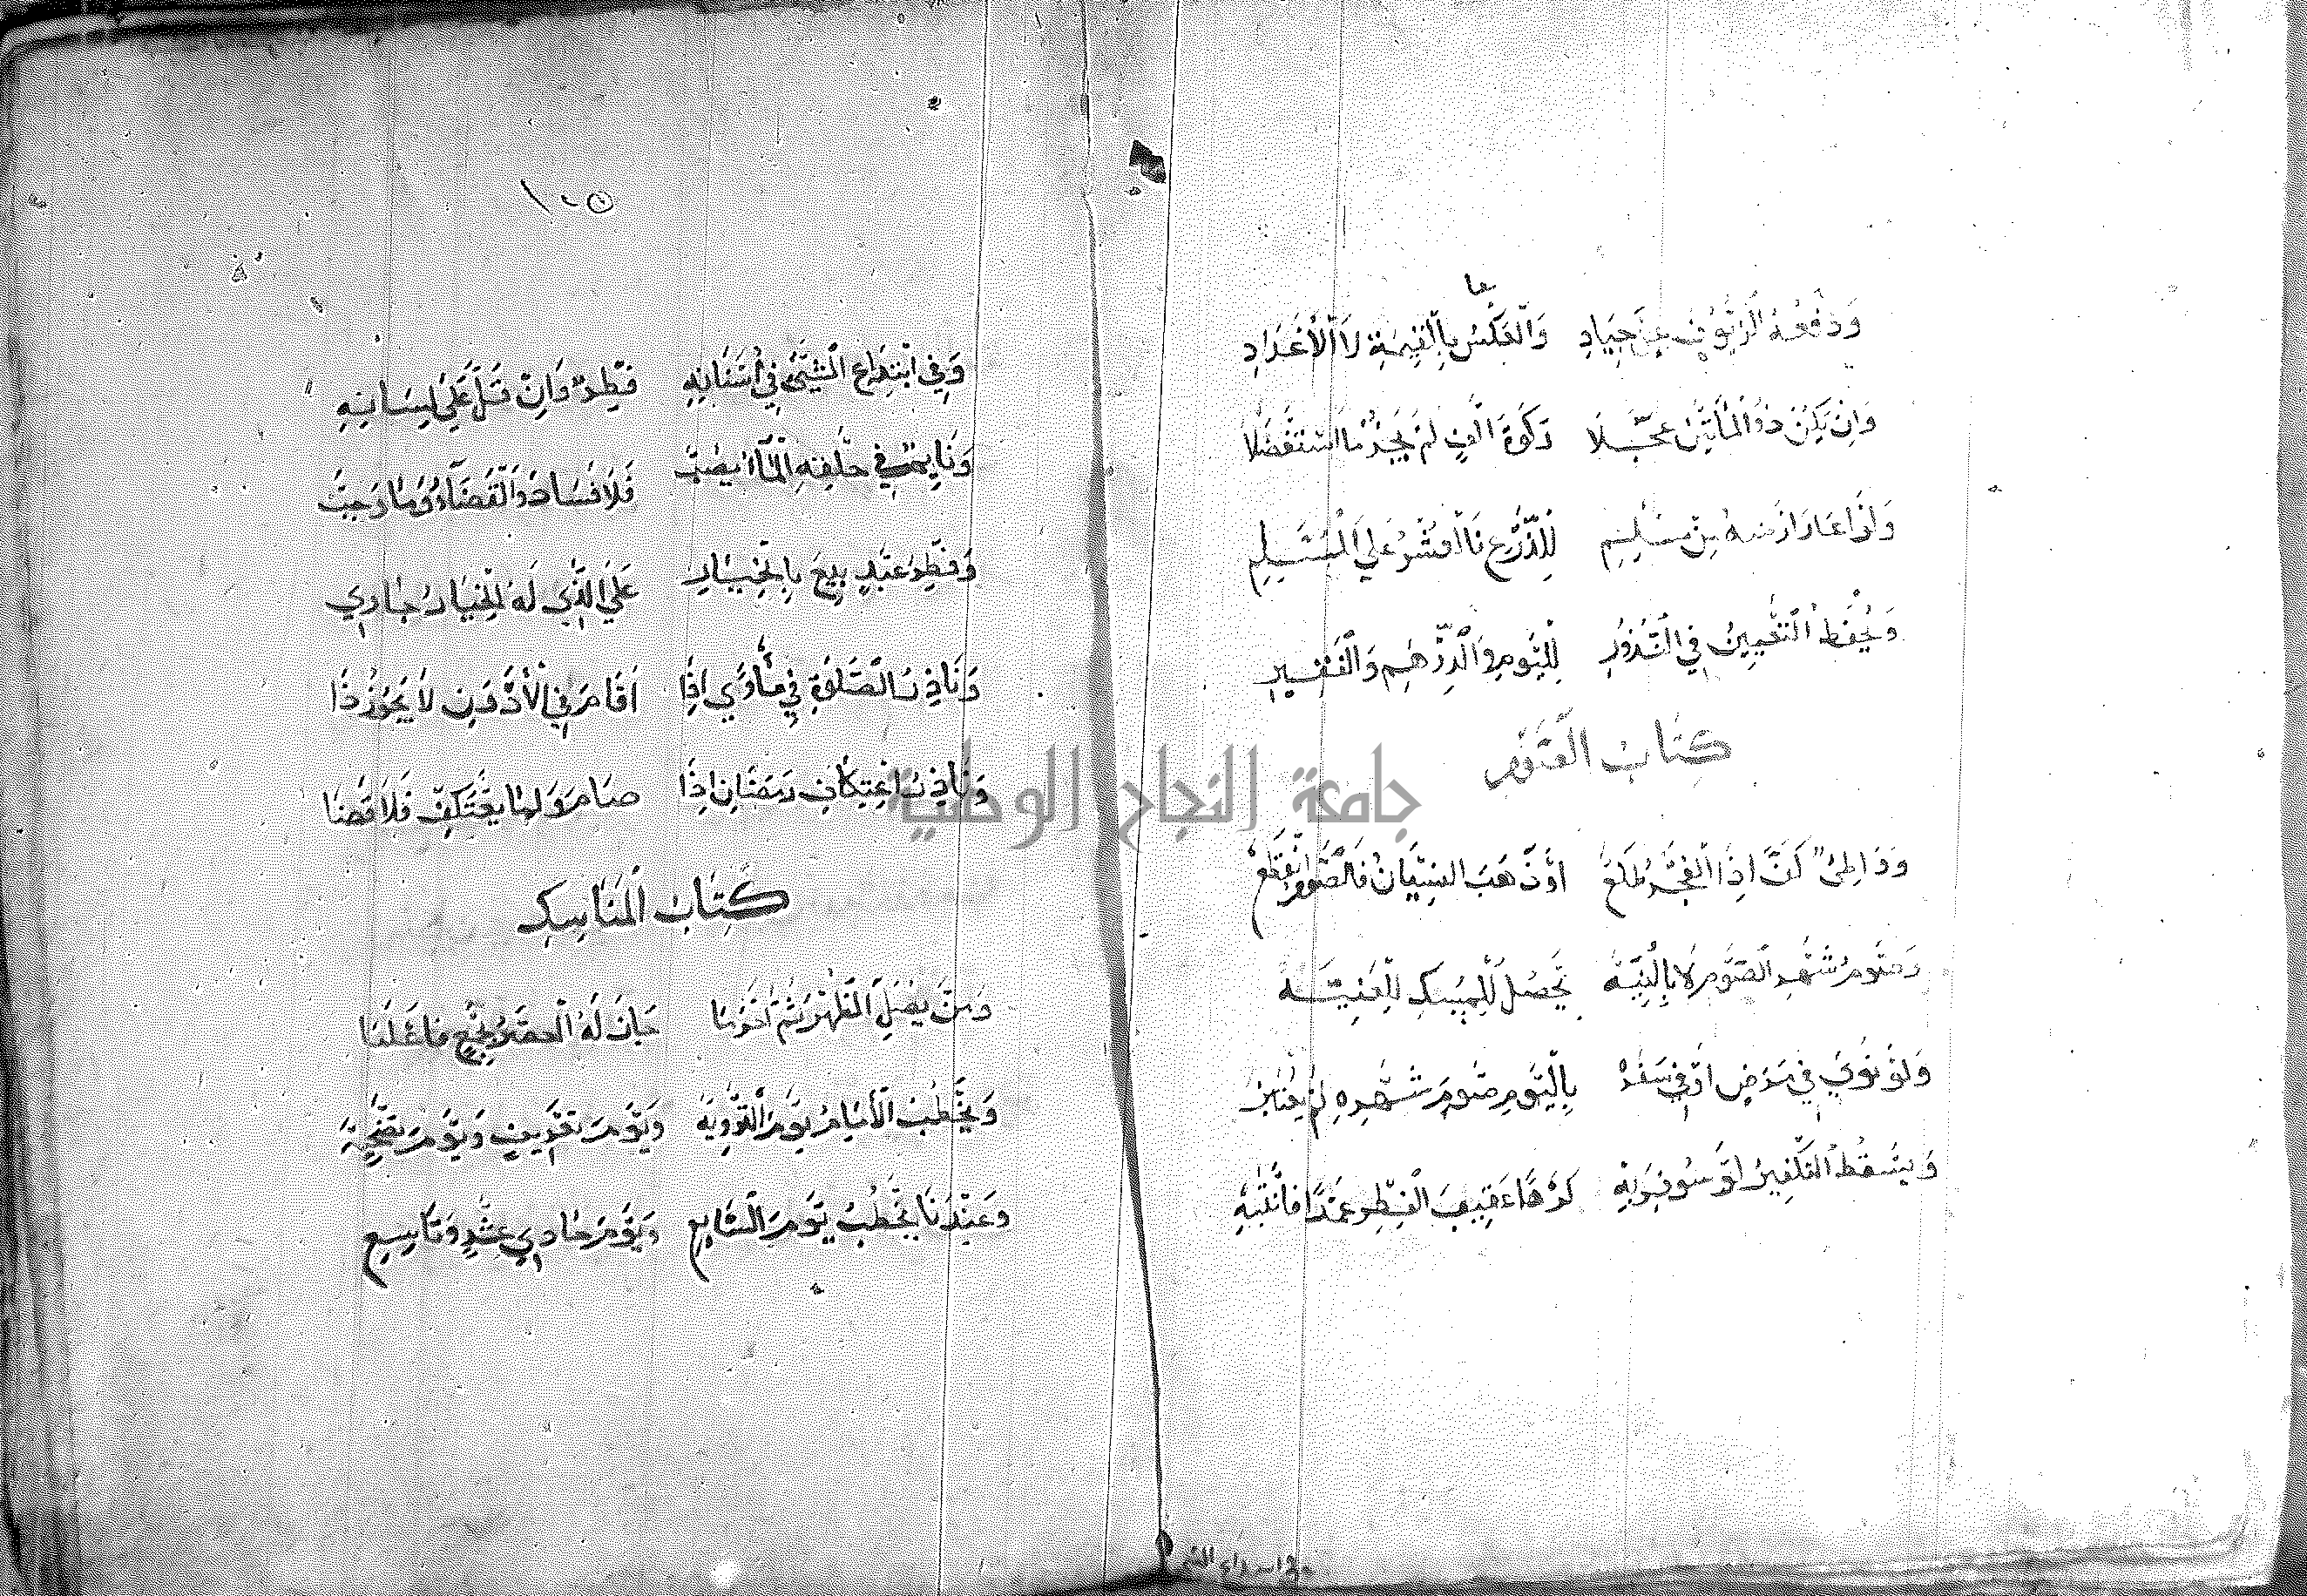 وَدَفْعُهُ الزُّيُوفَ عَنْ جِيَادِ وَالْعَكْسُ بِالْقِيمَةِ لَا الْأَعْدَادِ
وَاِنْ يَكُنْ ذُو الْمِأَتَيْنِ عَجَّلَا زَكَوةَ اَلْفٍ لَمْ يَجُزْ مَا اسْتَفْضَلَا
وَلَوْ اَعَارَ اَرْضَهُ مِنْ مُسْلِمِ لِلزَّرْعِ فَالْعُشْرُ عَلَى الْمُسَلِّمِ
وَيُحْفَظُ التَّعْيِينُ فِي النُّذُورِ لِلْيَوْمِ وَالدِّرْهَمِ وَالْفَقِيرِ
كِتَابُ الصَّوْمِ
وَوَاطِئٌ كَفَّ اِذَا الْفَجْرُ طَلَعْ اَوْ ذَهَبَ النِّسْيَانُ فَالصَّوْمُ انْقَطَعْ
وَصَوْمُ شَهْرِ الصَّوْمِ لَا بِالنِّيَّهْ يَحْصُلُ لِلْمُمْسِكِ لِلْغَنِيَّهْ
وَلَوْ نَوَى فِي مَرَضٍ اَوْ فِي سَفَرْ بِالْيَوْمِ صَوْمَ شَهْرِهِ لَمْ يُعْتَبَرْ
وَيَسْقُطُ التَّكْفِيرُ لَوْ سُوفِرَ بِهْ كَرْهًا عَقِيبَ الْفِطْرِ عَمْدًا فَانْتَبِهْ
١٠٥
وَفِي ابْتِلَاعِ الشَّيْءِ فِي اَسْنَانِهِ فِطْرٌ وَاِنْ قَلَّ عَلَى لِسَانِهِ
وَنَايِمٌ فِي حَلْقِهِ الْمَاءُ يُصَبْ فَلَا فَسَادَ وَالْقَضَاءُ مَا وَجَبْ
وَفِطْرُ عَبْدٍ بِيعَ بِالْخِيَارِ عَلَى الَّذِي لَهُ الْخِيَارُ جَارِي
وَنَاذِرُ الصَّلَوةِ فِي مَأْوًى اِذَا اَقَامَ فِي الْاَدْوَنِ لَا يَجُوزُ ذَا
وَنَاذِرُ اعْتِكَافِ رَمَضَانِ اِذَا صَامَ وَلَمَّا يَعْتَكِفْ فَلَا قَضَا
كِتَابُ الْمَنَاسِكِ
وَمَنْ يُصَلِّ الظُّهْرَ ثُمَّ اَحْرَمَا جَازَ لَهُ الْعَصْرُ بِجَمْعٍ فَاعْلَمَا
وَيَخْطُبُ الْاِمَامُ يَوْمَ التَّرْوِيَهْ وَيَوْمَ تَعْرِيفٍ وَيَوْمَ تَضْحِيَهْ
وَعِنْدَنَا يَخْطُبُ يَوْمَ السَّابِعِ وَيَوْمَ حَادِي عَشْرِ وَتَاسِعِ
جامعة النجاح الوطنية